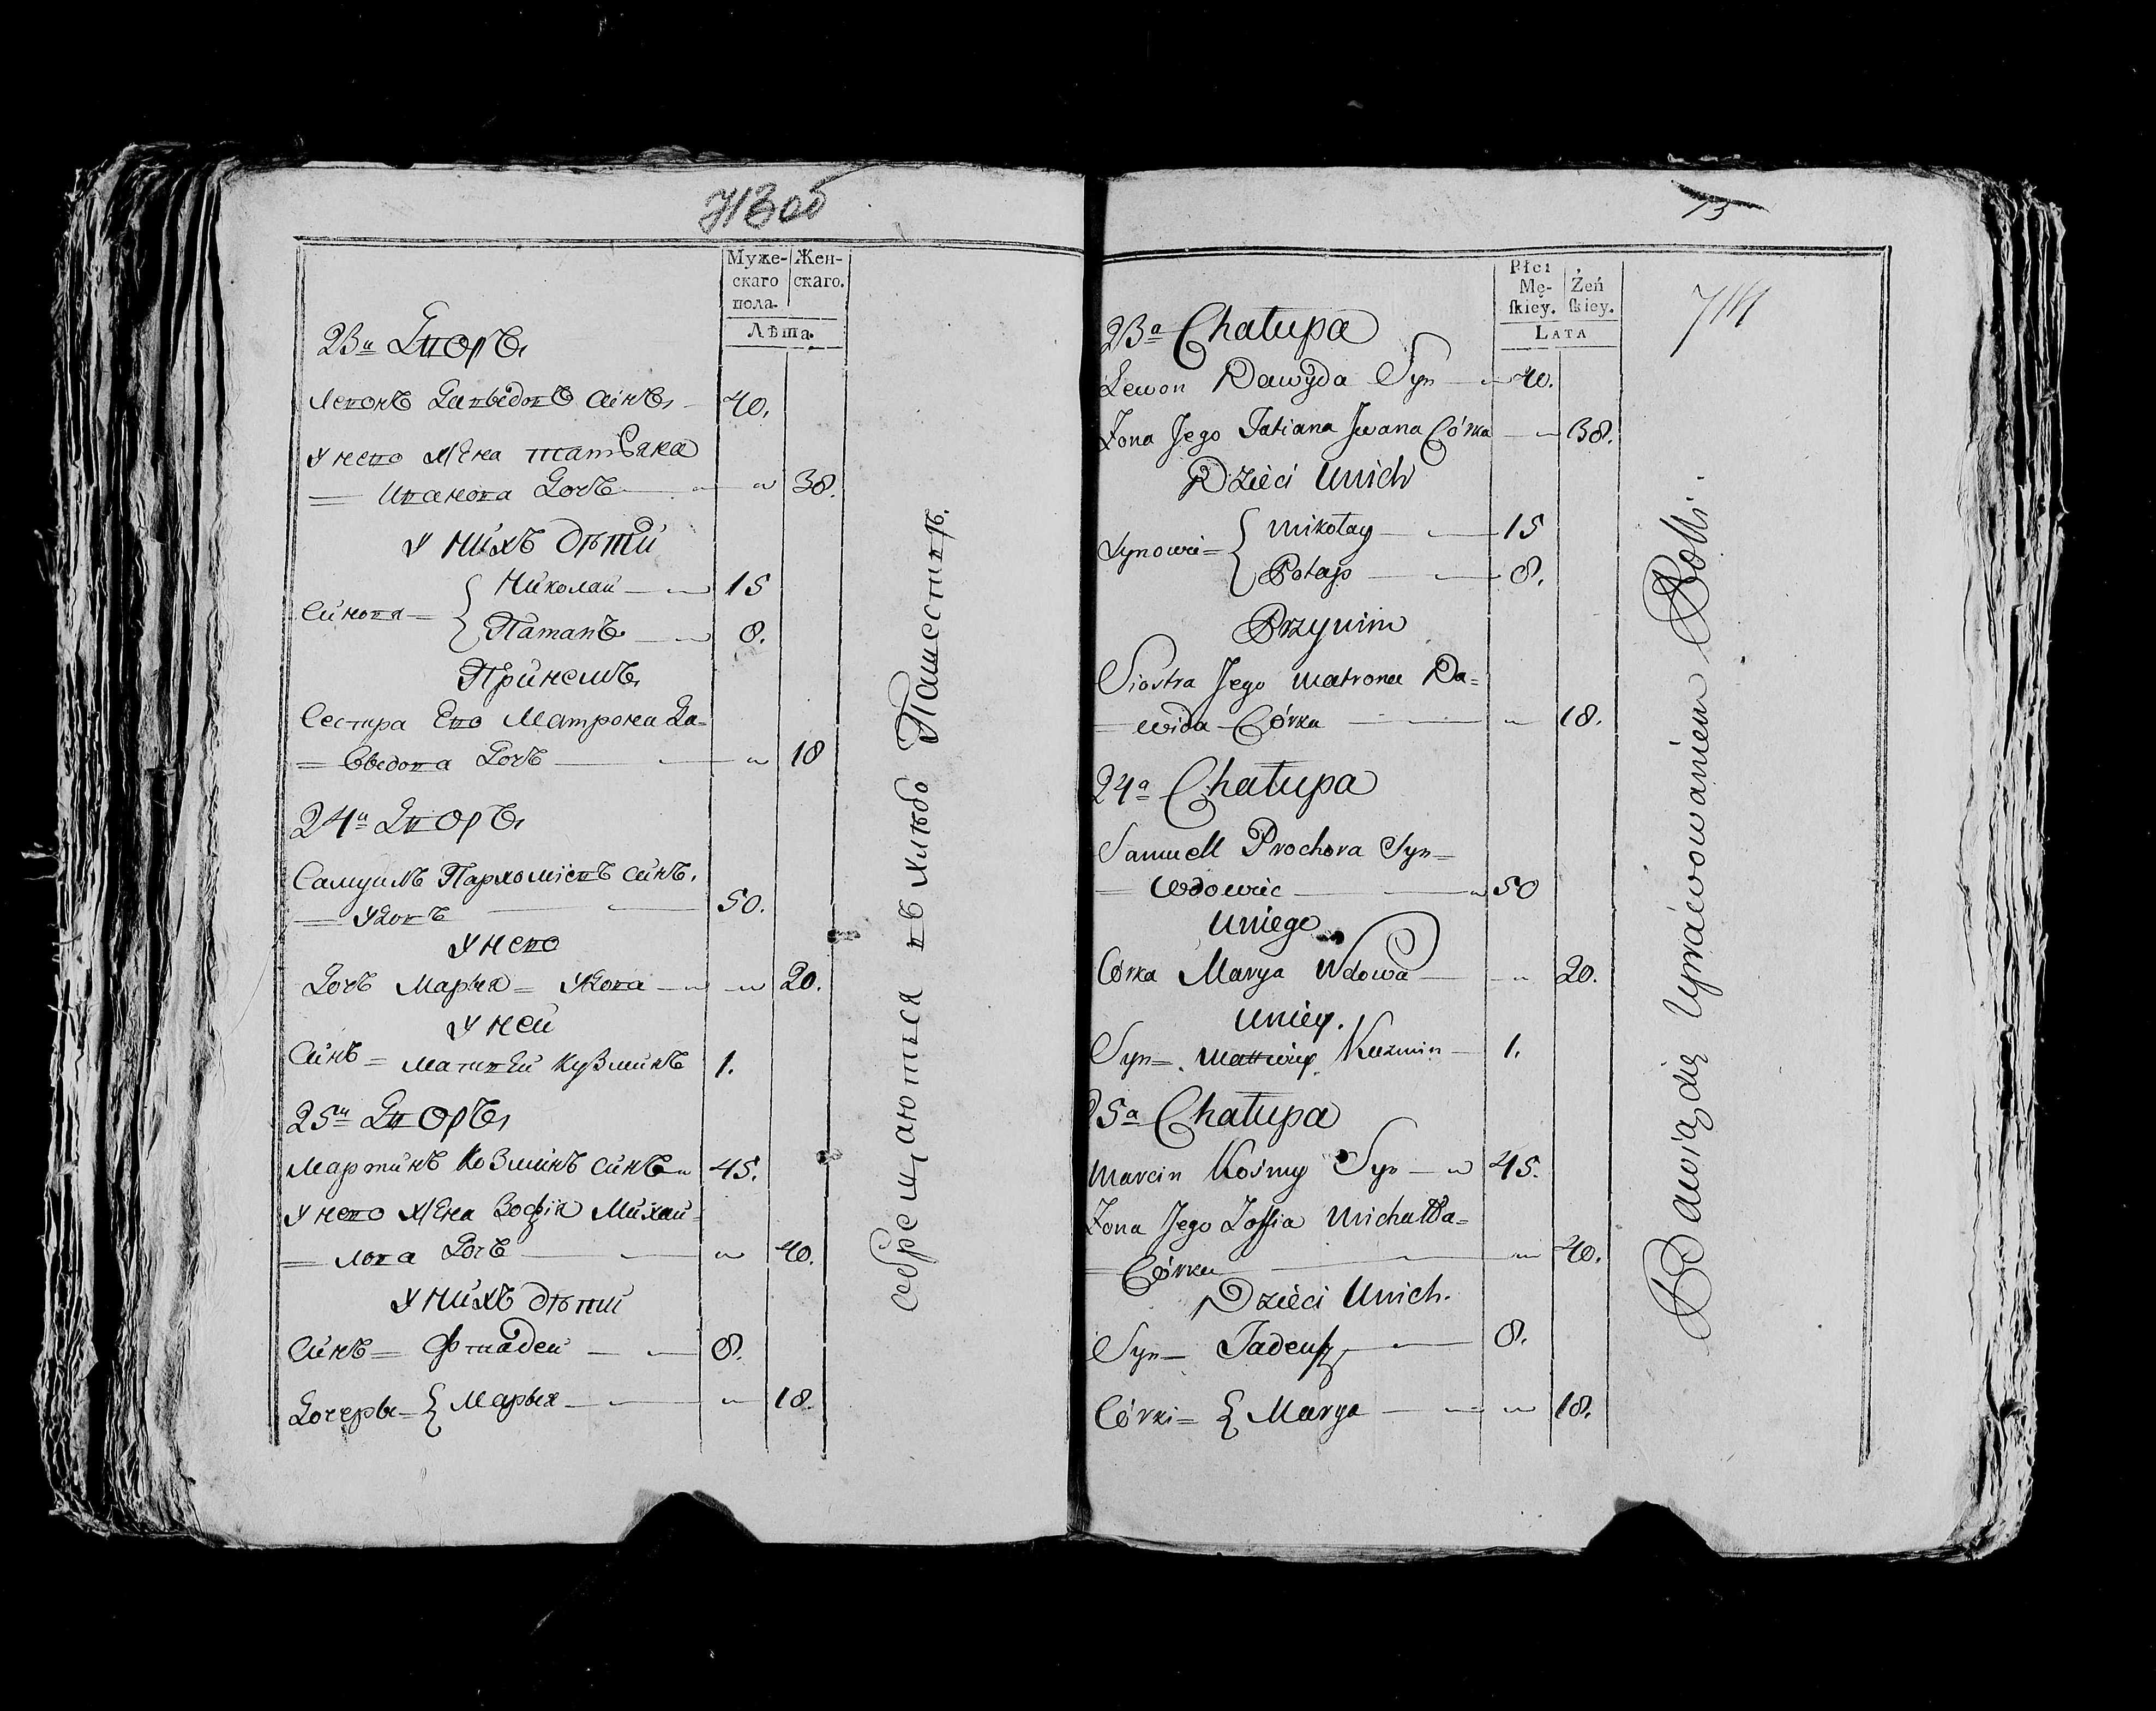 Муже-
скаго
пола.
Жен-
скаго.
Лѣта.
23й Дворъ
Левонъ Давыдовъ синъ 40.
У него жена татьяна
= Иванова Дочь 38.
У нихъ дѣти
Синовя = { Николай 15
Патапъ 8.
Принемъ
Сестра Его Матрона Да=
= выдова Дочь 18
24й Дворъ
Самуилъ Пархомієвъ синъ.
= удовъ 50.
У него
Дочь Марья = удова 20.
У ней
Синъ = Матвей Кузминъ 1.
25й Дворъ
Мартинъ Козминъ синъ 45.
У него жена Зофія Михаи=
= лова Дочь 40.
У нихъ дѣти
Синъ = Фтадеи 8.
Дочеры = { Марья 18.
обрещаються въ хлѣбо Пашествѣ.
73
Płci
Mę-
skiey.
Żeń
skiey.
LATA
23a Chałupa
Lewon Dawyda Syn 40.
Żona Jego Tatiana Jwana Córka 38.
Dzieci Unich
Synowie = { Mikołay 15
Potap 8.
Przynim
Siostra Jego Matrona Da=
= wida Córka 18.
24a Chałupa
Samuell Prochora Syn =
= Wdowiec 50
Uniego
Córka Marya Wdowa 20.
Uniey.
Syn = Mattwiey Kuzmin 1.
25a Chałupa
Marcin Koźmy Syn 45.
Żona Jego Zoffia Michałła=
= Córka 40.
Dzieci Unich.
Syn = Tadeusz 8.
Córki = { Marya 18.
Bawią się Uprawowaniem Rolli.